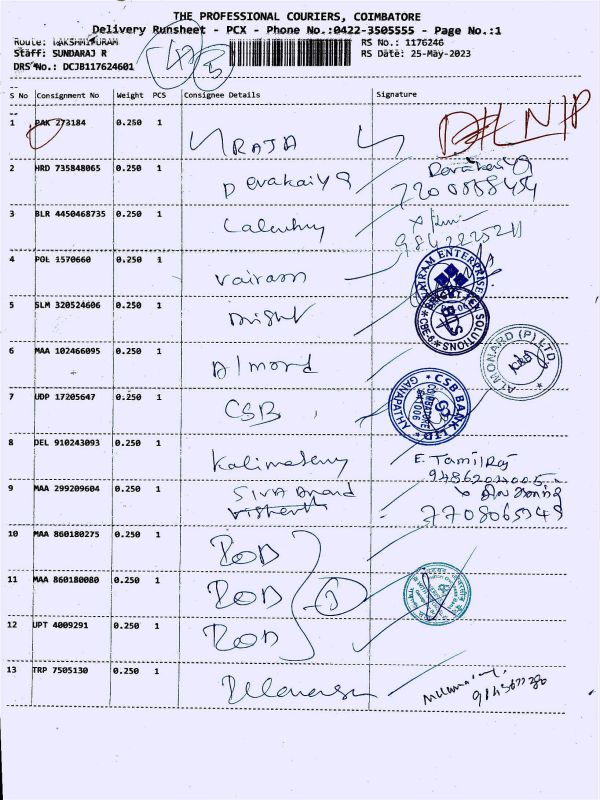 THE PROFESSIONAL COURIERS, COIMBATORE
Delivery Runsheet - PCX - Phone No.:0422-3505555 - Page No.:1
Route: LAKSHMIPURAM RS No.: 1176246
Staff: SUNDARAJ R RS Date: 25-May-2023
DRS No.: DCJB117624601
S No Consignment No Weight PCS Consignee Details Signature
1 BAK 273184 0.250 1 RAJA
2 HRD 735848065 0.250 1 Devakaiya Devakaiya
3 BLR 4450468735 0.250 1
4 POL 1570660 0.250 1 Vairam VAIRAM ENTERPRISE
5 SLM 320524606 0.250 1 Bright BRIGHT TEX SOLUTIONS CBE-6
6 MAA 102466095 0.250 1 Almond ALMONARD (P) LTD.
7 UDP 17205647 0.250 1 CSB CSB BANK LTD GANAPATHY COIMBATORE 641006
8 DEL 910243093 0.250 1 E. TamilRaj
9 MAA 299209604 0.250 1 SIVA Anand
10 MAA 860180275 0.250 1 BOB
11 MAA 860180080 0.250 1 BOB
12 UPT 4009291 0.250 1 BOB
13 TRP 7505130 0.250 1